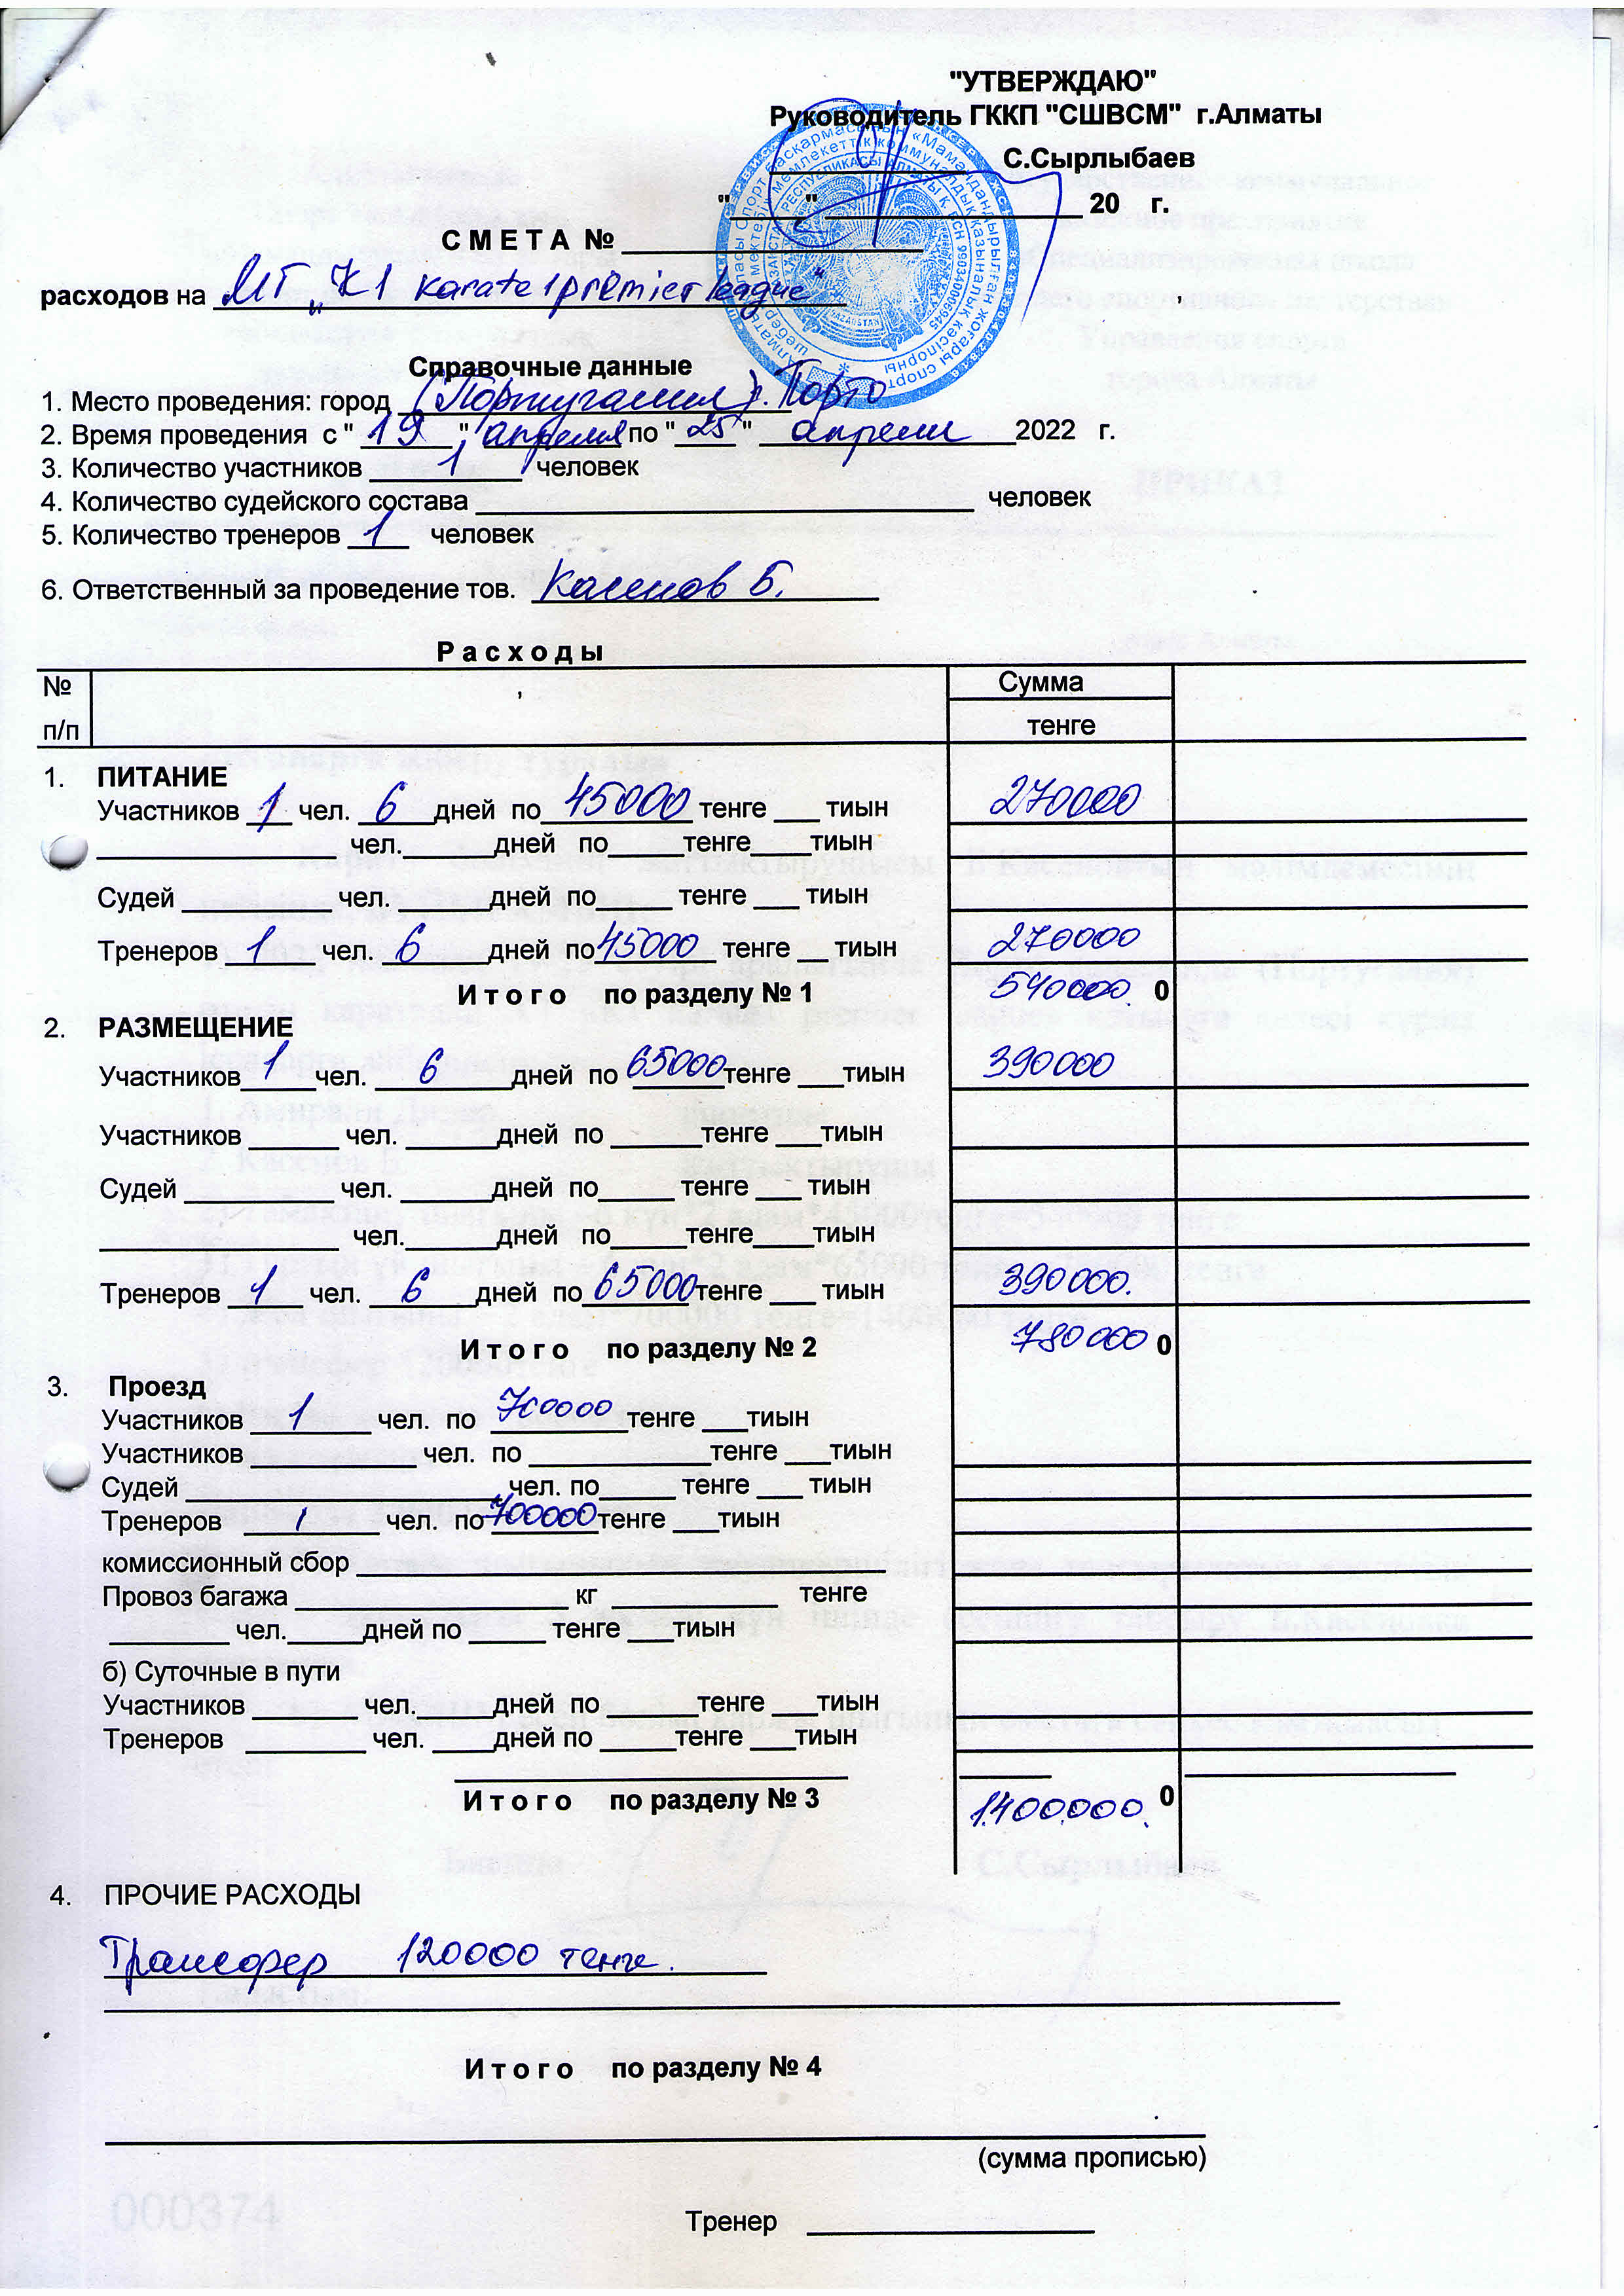 "УТВЕРЖДАЮ"
Руководитель ГККП "СШВСМ" г.Алматы
С.Сырлыбаев
"____" ____________ 20 г.
С М Е Т А № ____________
расходов на МТ „K1 Karate 1 premier league"
Справочные данные
1. Место проведения: город (Португалия) г. Порто
2. Время проведения с " 19 " апреля по " 25 " апреля 2022 г.
3. Количество участников 1 человек
4. Количество судейского состава ____________ человек
5. Количество тренеров 1 человек
6. Ответственный за проведение тов. Касенов Б.
Р а с х о д ы
№ п/п Сумма
тенге
1. ПИТАНИЕ
Участников 1 чел. 6 дней по 45000 тенге ___ тиын 270000
____________ чел.______дней по_____тенге____тиын
Судей __________ чел. ______дней по_____ тенге ___ тиын
Тренеров 1 чел. 6 дней по 45000 тенге __тиын 270000
И т о г о по разделу № 1 540000. 0
2. РАЗМЕЩЕНИЕ
Участников 1 чел. 6 дней по 65000 тенге ___тиын 390000
Участников ______ чел. ______дней по ______тенге ___тиын
Судей __________ чел. ______дней по_____ тенге ___ тиын
____________ чел.______дней по_____тенге____тиын
Тренеров 1 чел. 6 дней по 65000 тенге ___ тиын 390000.
И т о г о по разделу № 2 780000 0
3. Проезд
Участников 1 чел. по 700000 тенге ___тиын
Участников ___________ чел. по ____________тенге ___тиын
Судей ____________ чел. по_____ тенге ___ тиын
Тренеров 1 чел. по 700000 тенге ___тиын
комиссионный сбор ____________
Провоз багажа ____________ кг ___________ тенге
________ чел._____дней по _____ тенге ___тиын
б) Суточные в пути
Участников _______ чел._____дней по ______тенге ___тиын
Тренеров ________ чел. ____дней по _____тенге ___тиын
И т о г о по разделу № 3 1.400.000. 0
4. ПРОЧИЕ РАСХОДЫ
Трансфер 120000 тенге.
И т о г о по разделу № 4
(сумма прописью)
Тренер ____________
000374